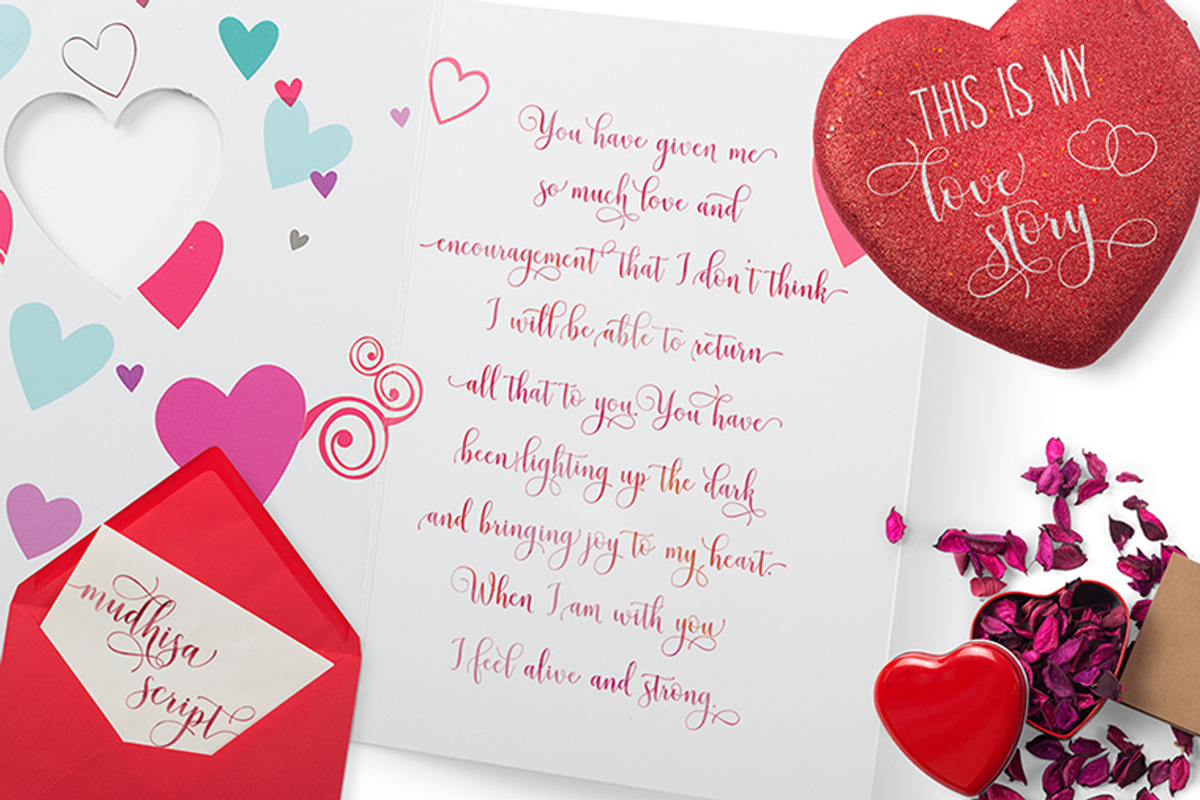 You have given me
so much love and
encouragement that I don't think
I will be able to return
all that to you. You have
been lighting up the dark
and bringing joy to my heart.
When I am with you
I feel alive and strong.
THIS IS MY
love
story
mudhisa
script